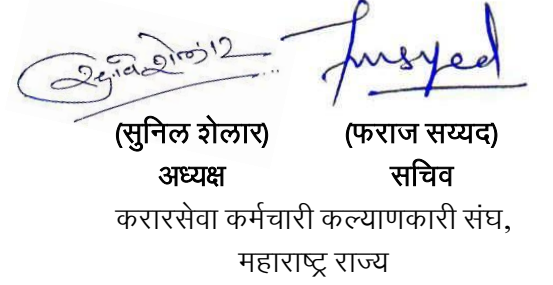 (सुनिल शेलार) (फराज सय्यद)
अध्यक्ष सचिव
करारसेवा कर्मचारी कल्याणकारी संघ,
महाराष्ट्र राज्य